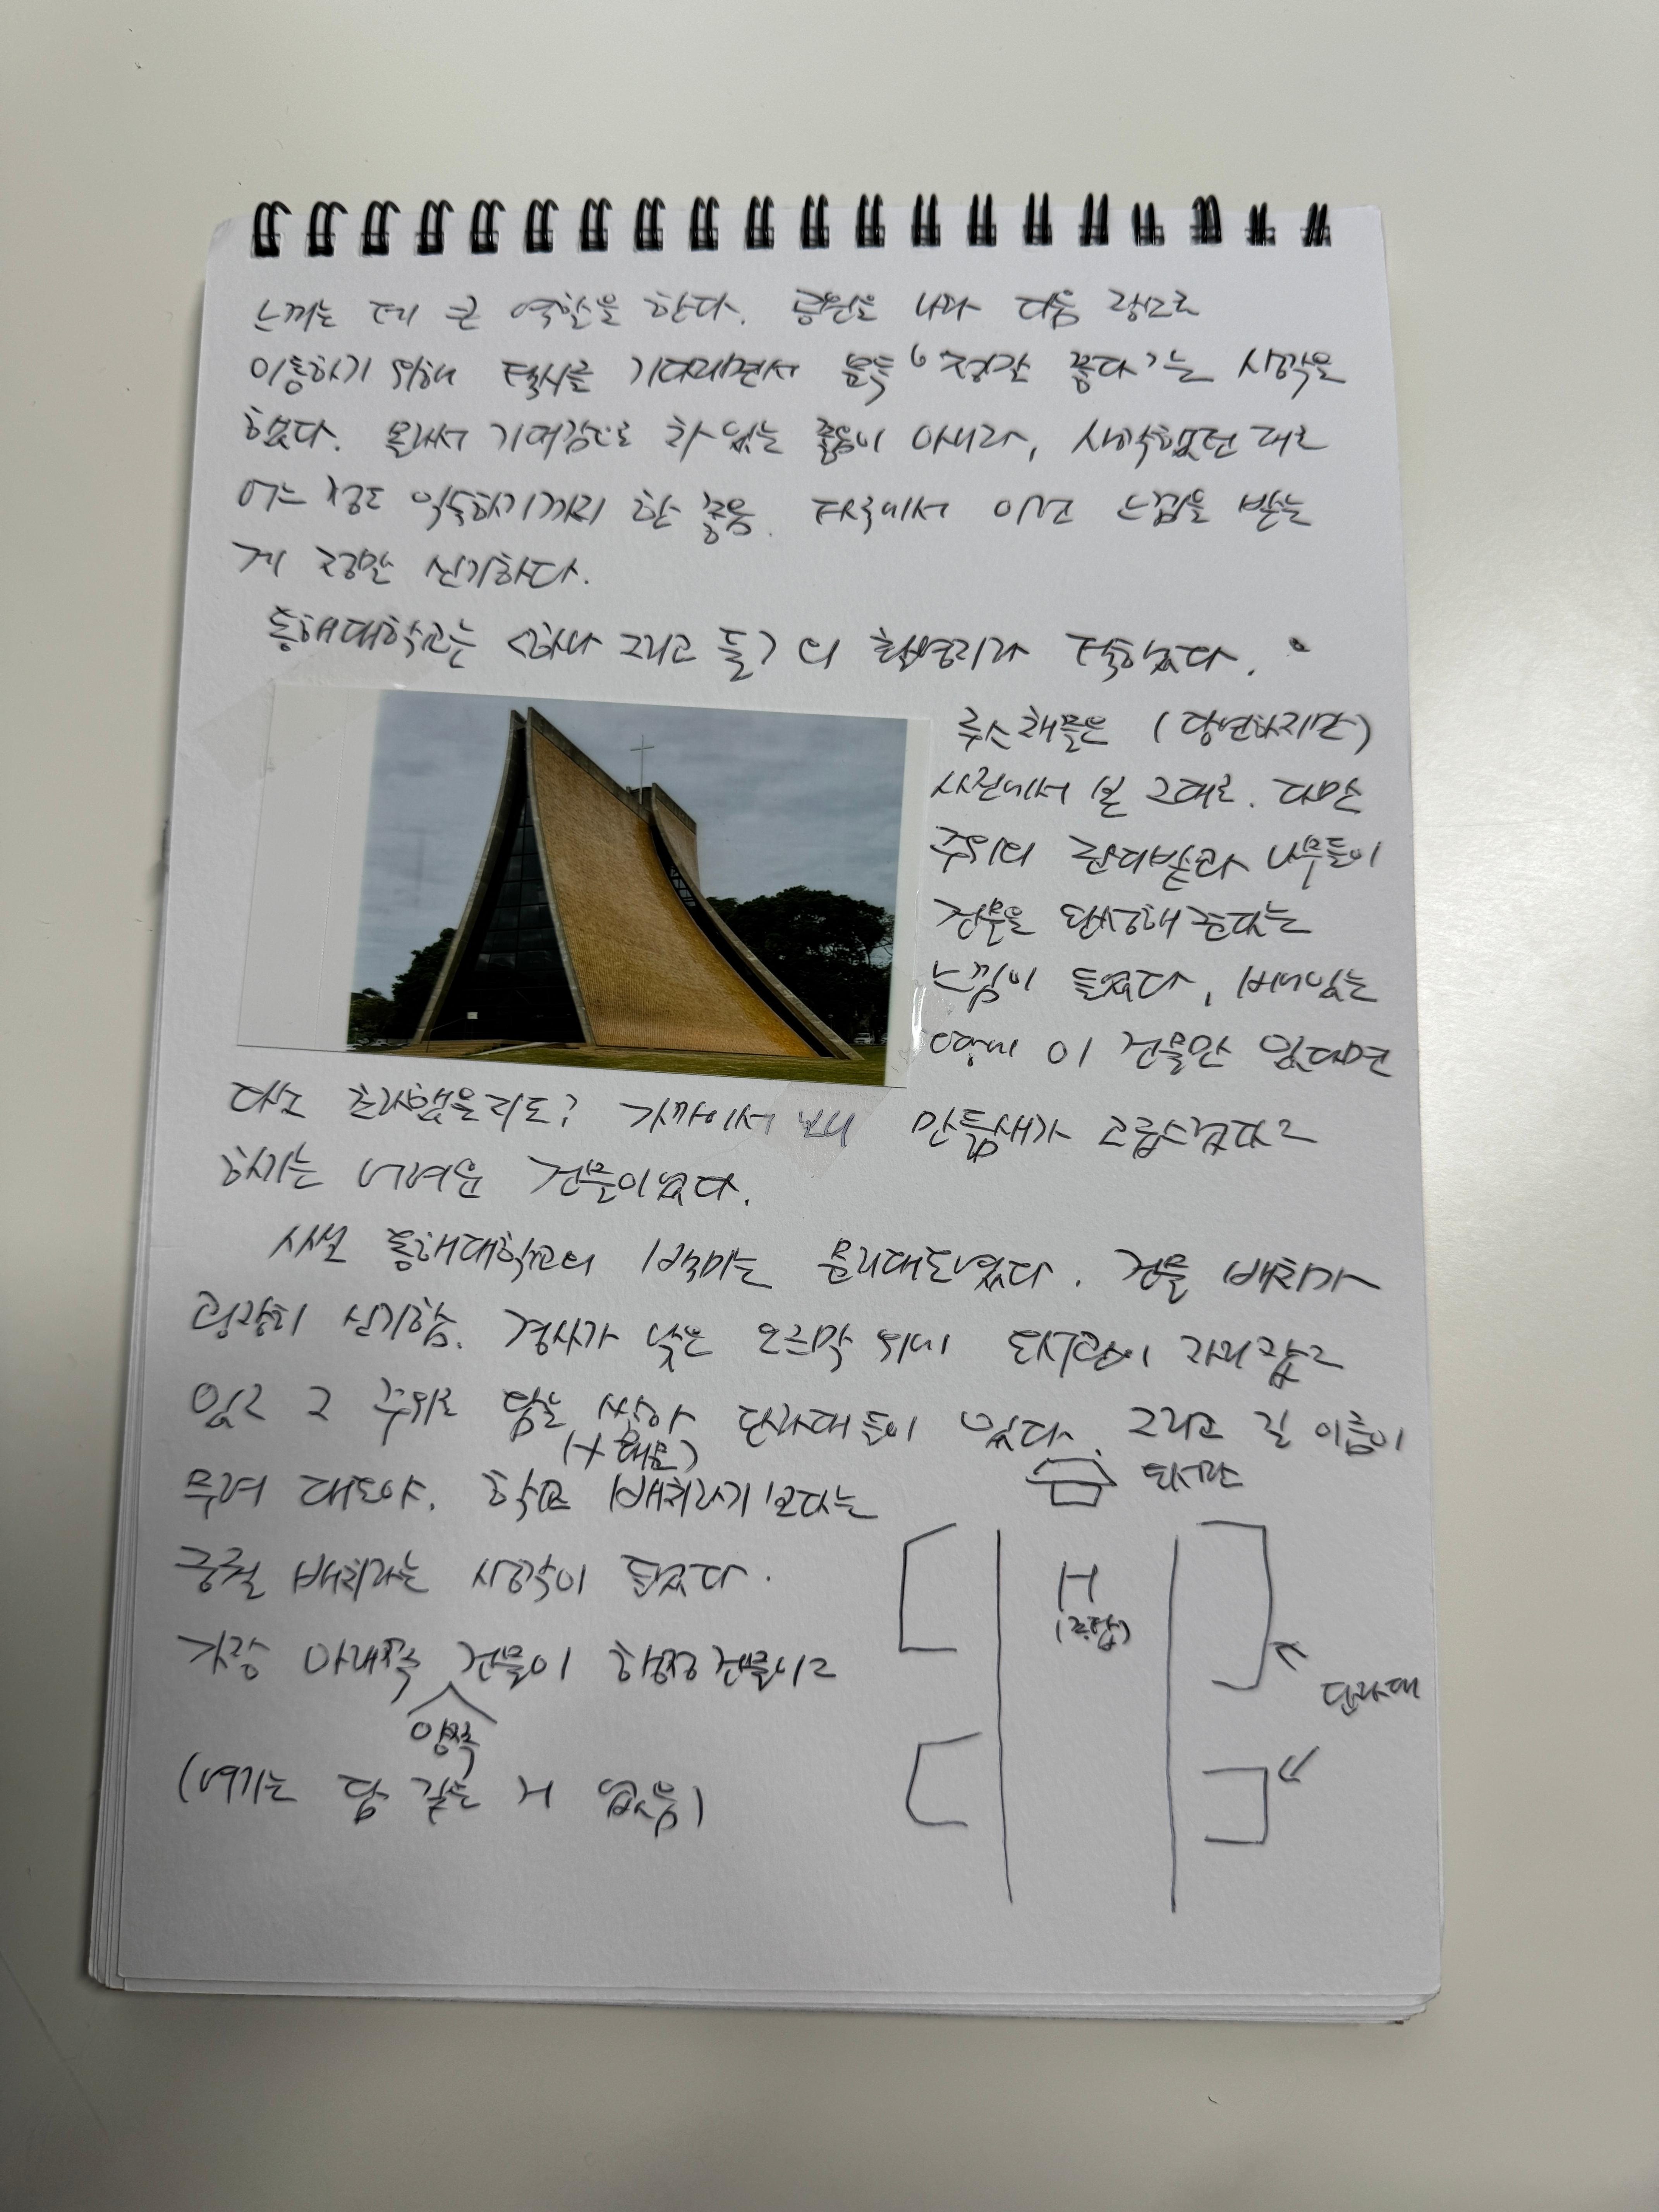 느끼는 데 큰 역할을 한다. 공원을 나와 다음 장소로
이동하기 위해 택시를 기다리면서 문득 '정말 좋다'는 생각을
했다. 몰라서 기대감으로 차 있는 좋음이 아니라, 생각했던 대로
어느 정도 익숙하기까지 한 좋음. 타국에서 이런 느낌을 받는
게 정말 신기하다.
동해대학교는 <하나 그리고 둘>의 촬영지라 택했었다.
루스채플은 (당연하지만)
사진에서 본 그대로. 다만
주위의 잔디밭과 나무들이
건물을 완성해 준다는
느낌이 들었다. 비어있는
땅에 이 건물만 있다면
다소 초라했을지도? 가까이서 보니 만듦새가 고급스럽다고
하기는 어려운 건물이었다.
사실 동해대학교의 백미는 문리대도였다. 건물 배치가
굉장히 신기함. 경사가 낮은 오르막 위에 도서관이 자리잡고
있고 그 주위로 담을 쌓아 단과대들이 있다. 그리고 길 이름이
(+ 대문)
무려 대도야. 학교 배치라기보다는
도서관
궁궐 배치라는 생각이 들었다.
H
가장 아래쪽 건물이 행정건물이고
양쪽
단과대
(여기는 담 같은 거 없음)